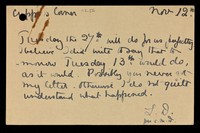 Cripps's Corner
Nov 12th
Tuesday the 27th will do for us, perfectly
I believe I did write & say that to-
morrow Tuesday 13th would do,
as it would. Possibly you never got
my letter. Otherwise I do not quite
understand what happened.